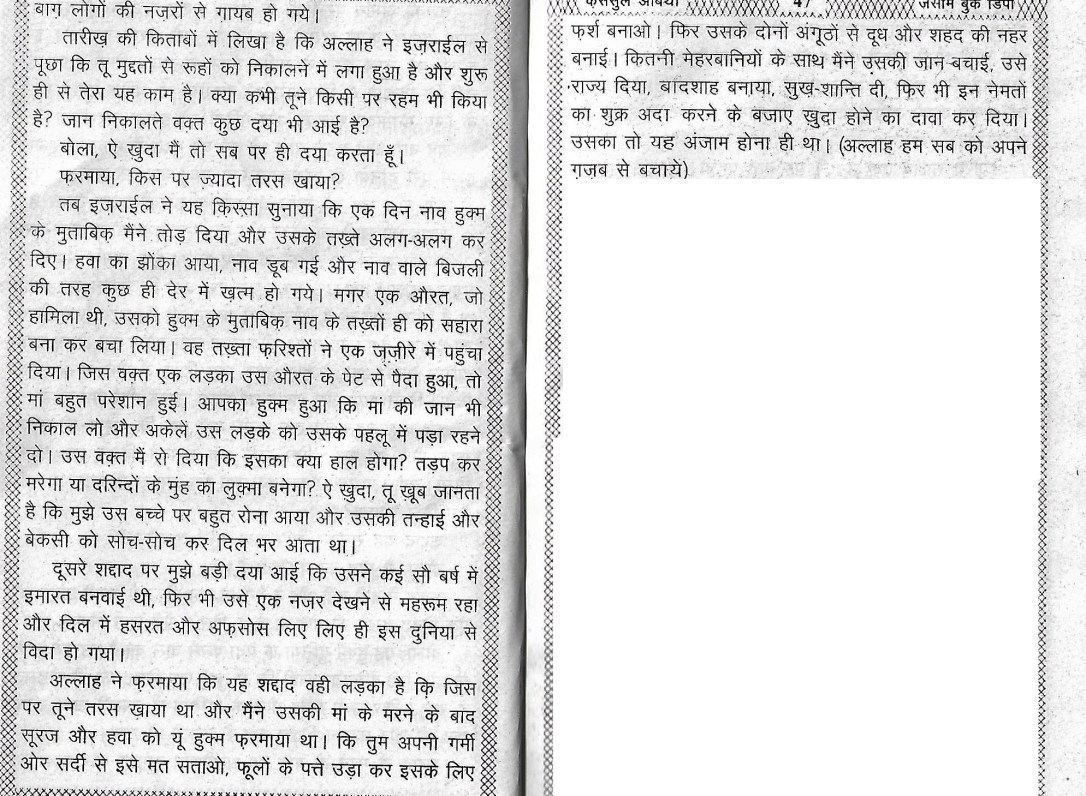 बाग़ लोगों की नज़रों से ग़ायब हो गये।
तारीख़ की किताबों में लिखा है कि अल्लाह ने इज़राईल से
पूछा कि तू मुद्दतों से रूहों को निकालने में लगा हुआ है और शुरू
ही से तेरा यह काम है। क्या कभी तूने किसी पर रहम भी किया
है? जान निकालते वक़्त कुछ दया भी आई है?
बोला, ऐ ख़ुदा मैं तो सब पर ही दया करता हूँ।
फ़रमाया, किस पर ज़्यादा तरस खाया?
तब इज़राईल ने यह क़िस्सा सुनाया कि एक दिन नाव हुक्म
के मुताबिक़ मैंने तोड़ दिया और उसके तख़्ते अलग-अलग कर
दिए। हवा का झोंका आया, नाव डूब गई और नाव वाले बिजली
की तरह कुछ ही देर में ख़त्म हो गये। मगर एक औरत, जो
हामिला थी, उसको हुक्म के मुताबिक़ नाव के तख़्तों ही को सहारा
बना कर बचा लिया। वह तख़्ता फ़रिश्तों ने एक जज़ीरे में पहुंचा
दिया। जिस वक़्त एक लड़का उस औरत के पेट से पैदा हुआ, तो
मां बहुत परेशान हुई। आपका हुक्म हुआ कि मां की जान भी
निकाल लो और अकेलें उस लड़के को उसके पहलू में पड़ा रहने
दो। उस वक़्त मैं रो दिया कि इसका क्या हाल होगा? तड़प कर
मरेगा या दरिन्दों के मुंह का लुक़्मा बनेगा? ऐ ख़ुदा, तू ख़ूब जानता
है कि मुझे उस बच्चे पर बहुत रोना आया और उसकी तन्हाई और
बेकसी को सोच-सोच कर दिल भर आता था।
दूसरे शद्दाद पर मुझे बड़ी दया आई कि उसने कई सौ बर्ष में
इमारत बनवाई थी, फिर भी उसे एक नज़र देखने से महरूम रहा
और दिल में हसरत और अफ़सोस लिए लिए ही इस दुनिया से
विदा हो गया।
अल्लाह ने फ़रमाया कि यह शद्दाद वही लड़का है कि जिस
पर तूने तरस खाया था और मैंने उसकी मां के मरने के बाद
सूरज और हवा को यूं हुक्म फ़रमाया था। कि तुम अपनी गर्मी
ओर सर्दी से इसे मत सताओ, फूलों के पत्ते उड़ा कर इसके लिए
क़ससुल अंबिया 47 जसीम बुक डिपो
फ़र्श बनाओ। फिर उसके दोनों अंगूठों से दूध और शहद की नहर
बनाई। कितनी मेहरबानियों के साथ मैंने उसकी जान बचाई, उसे
राज्य दिया, बादशाह बनाया, सुख-शान्ति दी, फिर भी इन नेमतों
का शुक्र अदा करने के बजाए ख़ुदा होने का दावा कर दिया।
उसका तो यह अंजाम होना ही था। (अल्लाह हम सब को अपने
ग़ज़ब से बचाये)